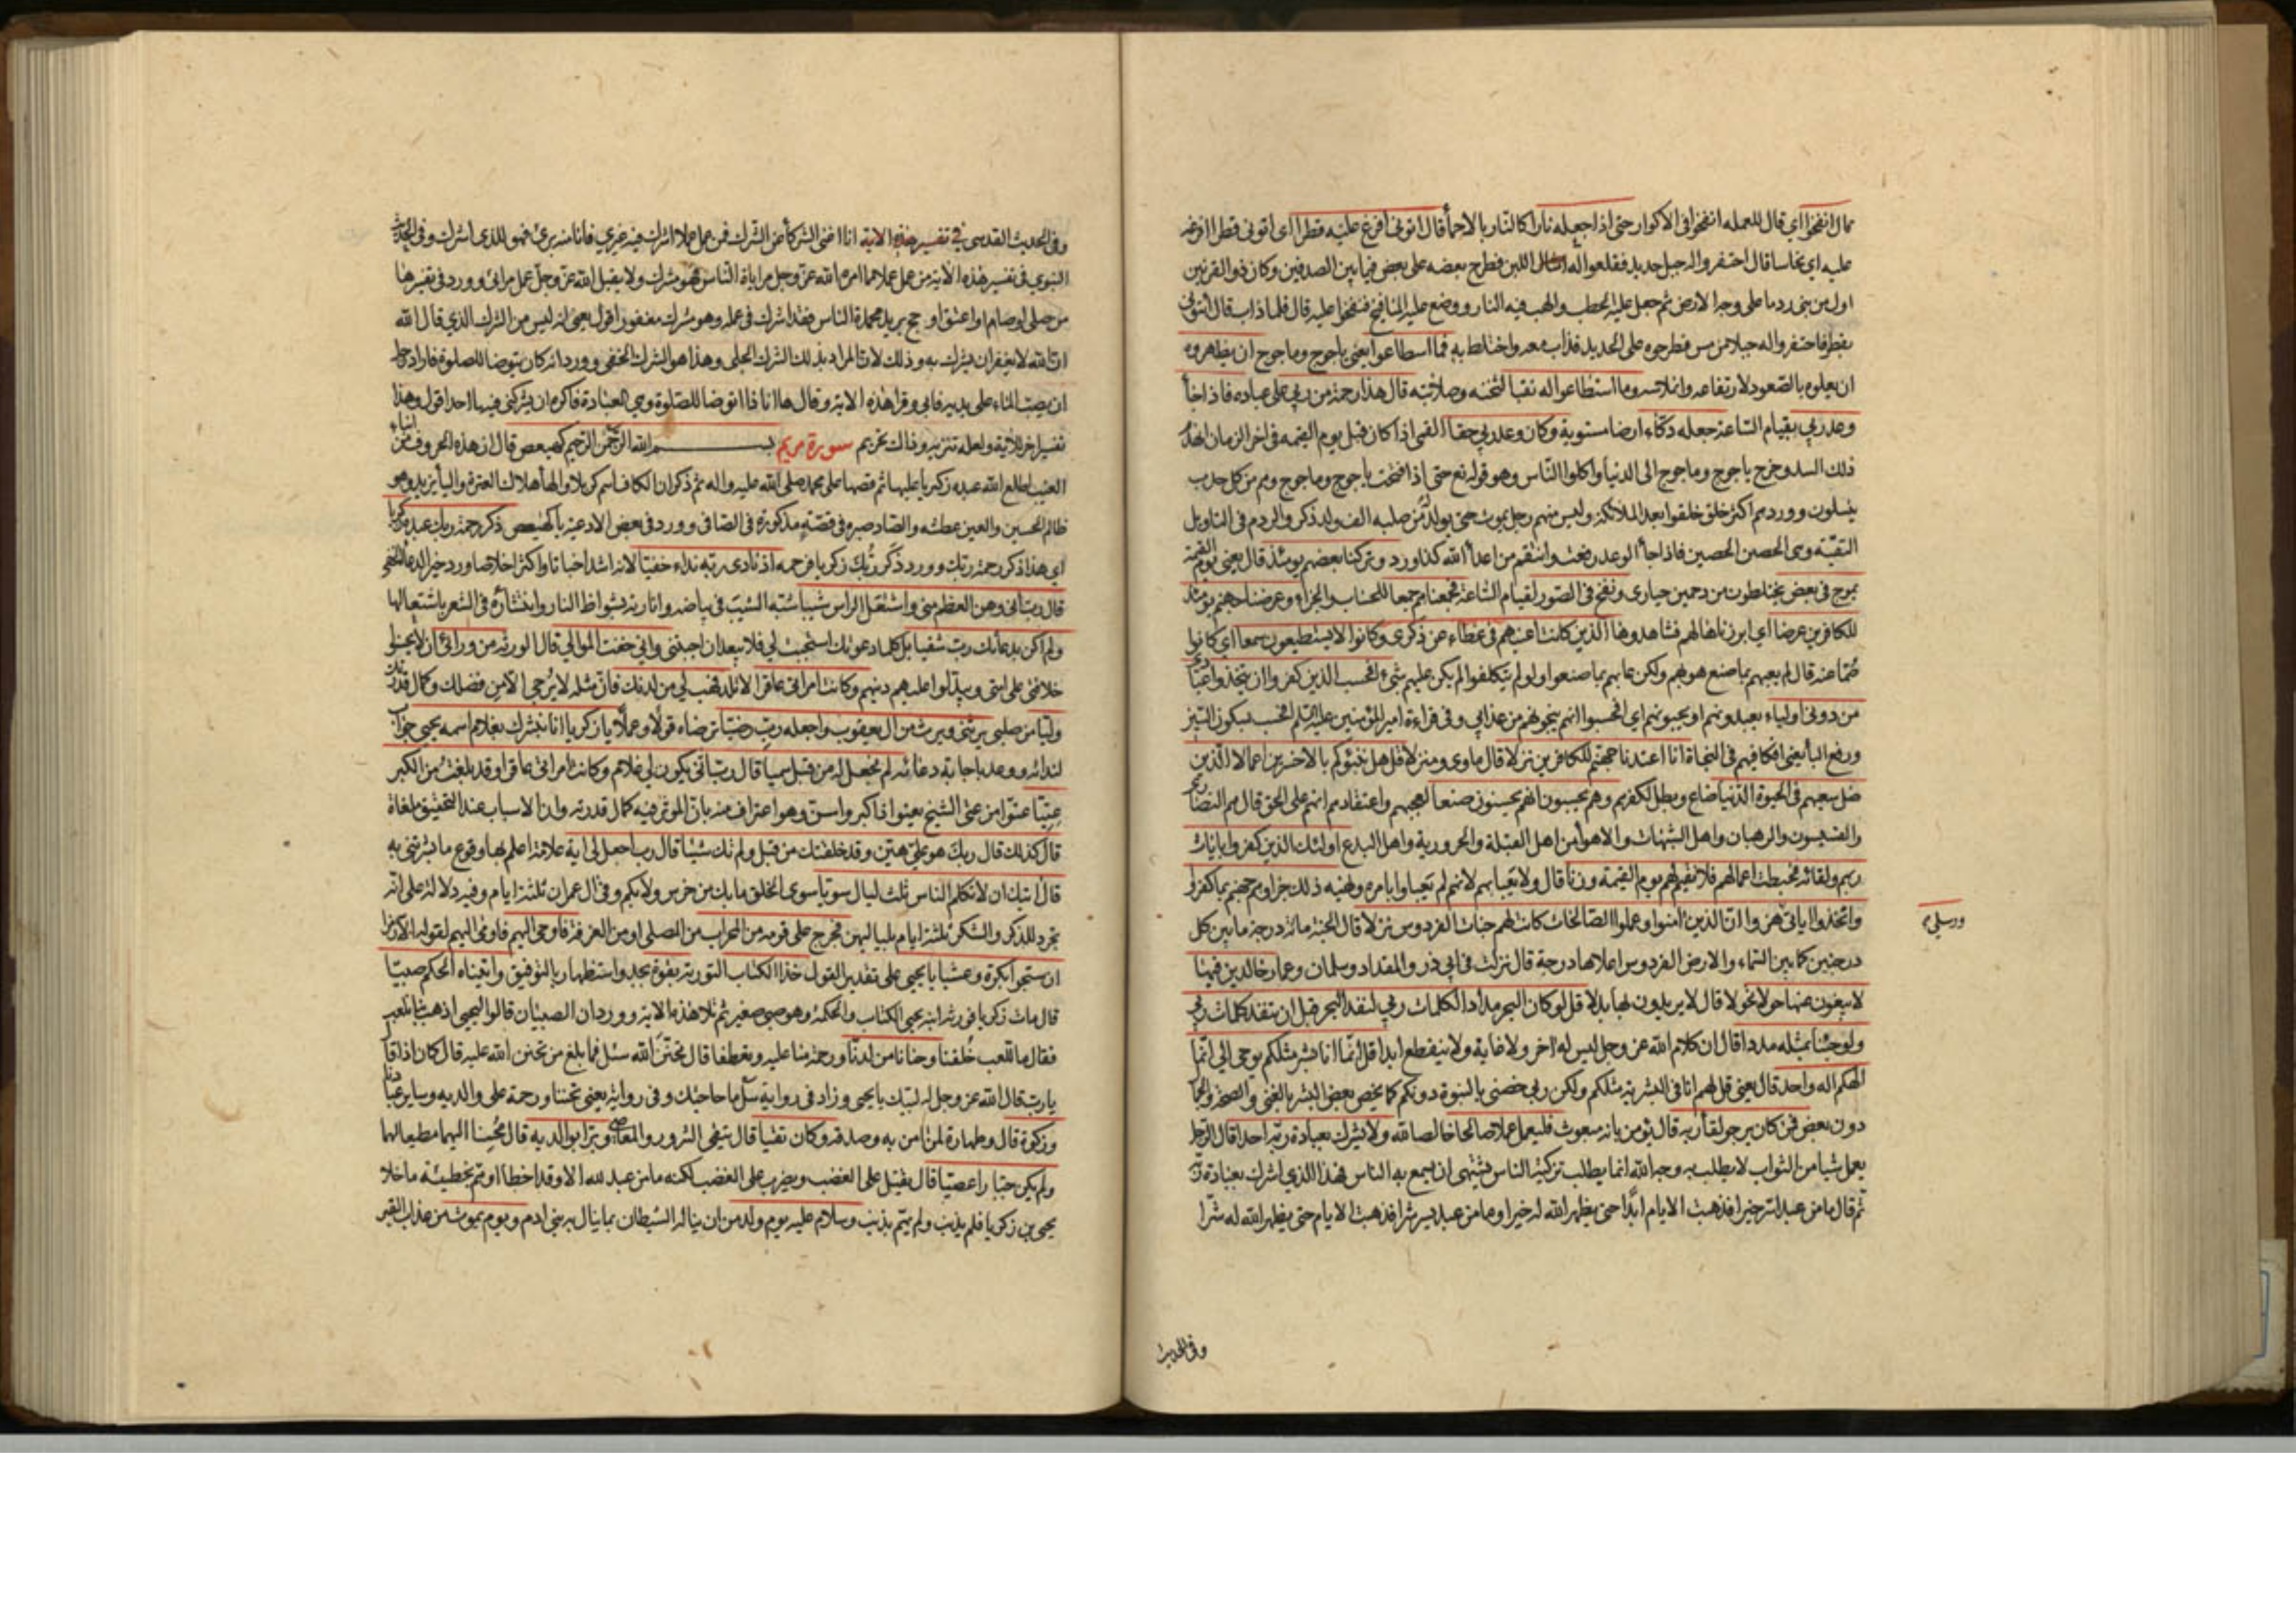 قال انفخوا اي قال للعمله انفخوا في الاكوار حتى اذا جعله نارا كالنار بالاحماء قال اتوني افرغ عليه قطرا اي اتوني قطرا افرغه
عليه اي نحاسا قال احتفروا له جبل حديد فقلعوا له امثال اللبن فطرح بعضه على بعض فيما بين الصدفين وكان ذو القرنين
اول من بنى ردما على وجه الارض ثم جعل عليه الحطب والهب فيه النار ووضع عليه المنافيخ فنفخوا عليه قال فلما ذاب قال اتوني
بقطر فاحتفروا له جبلا من مس فطرحوه على الحديد فذاب معه واختلط به فما اسطاعوا يعني ياجوج وماجوج ان يظهروه
ان يعلوه بالصعود لارتفاعه وانملاسه وما استطاعوا له نقبا لثخنه وصلابته قال هذا رحمة من ربي على عباده فاذا جاء
وعد ربي بقيام الساعة جعله دكاء ارضا مستوية وكان وعد ربي حقا القمي اذا كان قبل يوم القيمه في اخر الزمان انهدم
ذلك السد وخرج ياجوج وماجوج الى الدنيا واكلوا الناس وهو قوله تع حتى اذا فتحت ياجوج وماجوج وهم من كل حدب
ينسلون وورد هم اكثر خلق خلقوا بعد الملائكة وليس منهم رجل يموت حتى يولد من صلبه الف ولد ذكر والردم في التاويل
التقية وهى الحصن الحصين فاذا جاء الوعد رفعت وانتقم من اعداء الله كذا ورد وتركنا بعضهم يومئذ قال يعني يوم القيمة
يموج في بعض يختلطون مزدحمين حيارى ونفخ في الصور لقيام الساعة فجمعناهم جمعا للحساب والجزاء وعرضنا جهنم يومئذ
للكافرين عرضا اي ابرزناها لهم فشاهدوها الذين كانت اعينهم في غطاء عن ذكري وكانوا لا يستطيعون سمعا اي كانوا
صما عنه قال لم يعبهم بما صنع هو بهم ولكن عابهم بما صنعوا ولو لم يتكلفوا لم يكن عليهم شيء افحسب الذين كفروا ان يتخذوا عبادي
من دوني اولياء يعبدونهم او يحبونهم اي افحسبوا انهم ينجونهم من عذابي وفي قراءة امير المؤمنين عليه السلم افحسب بسكون السين
ورفع الباء يعني افكافيهم في النجاة انا اعتدنا جهنم للكافرين نزلا قال ماوى ومنزلا قل هل ننبؤكم بالاخسرين اعمالا الذين
ضل سعيهم في الحيوة الدنيا ضاع وبطل لكفرهم وهم يحسبون انهم يحسنون صنعا لعجبهم واعتقادهم انهم على الحق قال هم النصارى
والقسيسون والرهبان واهل الشبهات والاهواء من اهل القبلة والحرورية واهل البدع اولئك الذين كفروا بايات
ربهم ولقائه فحبطت اعمالهم فلا نقيم لهم يوم القيمة وزنا قال ولا يعبا بهم لانهم لم يعباوا بامره ونهيه ذلك جزاؤهم جهنم بما كفروا
واتخذوا اياتي هزوا ان الذين امنوا وعملوا الصالحات كانت لهم جنات الفردوس نزلا قال الجنة مائة درجة ما بين كل
ورسلي
درجتين كما بين السماء والارض الفردوس اعلاها درجة قال نزلت في ابي ذر والمقداد وسلمان وعمار خالدين فيها
لا يبغون عنها حولا تحولا قال لا يريدون لها بدلا قل لو كان البحر مدادا لكلمات ربي لنفد البحر قبل ان تنفد كلمات ربي
ولو جئنا بمثله مددا قال ان كلام الله عز وجل ليس له اخر ولا غاية ولا ينقطع ابدا قل انما انا بشر مثلكم يوحى الي انما
الهكم اله واحد قال يعني قل لهم انا في البشرية مثلكم ولكن ربي خصني بالنبوة دونكم كما يخص بعض البشر بالغنى والصحة والجمال
دون بعض فمن كان يرجو لقاء ربه قال يؤمن بانه مبعوث فليعمل عملا صالحا خالصا لله ولا يشرك بعبادة ربه احدا قال الرجل
يعمل شيا من الثواب لا يطلب به وجه الله انما يطلب تزكية الناس يشتهي ان يسمع به الناس فهذا الذي اشرك بعبادة ربه
ثم قال ما من عبد اسر خيرا فذهبت الايام ابدا حتى يظهر الله له خيرا وما من عبد يسر شرا فذهبت الايام حتى يظهر الله له شرا
وفي الحديث
وفي الحديث القدسي في تفسير هذه الاية انا اغنى الشركاء عن الشرك فمن عمل عملا اشرك فيه غيري فانا منه بريء فهو للذي اشرك وفي الحديث
النبوي في تفسير هذه الاية من عمل عملا مما امر الله عز وجل مراياة الناس فهو مشرك ولا يقبل الله عز وجل عمل مرائي وورد في تفسيرها
من صلى او صام او اعتق او حج يريد محمدة الناس فقد اشرك في عمله وهو شرك مغفور اقول يعني انه ليس من الشرك الذي قال الله
ان الله لا يغفر ان يشرك به وذلك لان المراد بذلك الشرك الجلي وهذا هو الشرك الخفي وورد انه كان يتوضا للصلوة فاراد رجل
ان يصب الماء على يديه فابى وقرا هذه الاية وقال ها انا ذا اتوضا للصلوة وهي العبادة فاكره ان يشركني فيها احد اقول وهذا
تفسير اخر للاية ولعله تنزيه وذاك تحريم سورة مريم بسم الله الرحمن الرحيم كهيعص قال ان هذه الحروف من انباء
الغيب اطلع الله عبده زكريا عليها ثم قصها على محمد صلى الله عليه واله ثم ذكر ان الكاف اسم كربلا والهاء هلاك العترة والياء يزيد وهو
ظالم الحسين والعين عطشه والصاد صبره في قصة مذكورة في الصافي وورد في بعض الادعية يا كهيعص ذكر رحمة ربك عبده زكريا
اي هذا ذكر رحمة ربك وورد ذكر ربك زكريا فرحمه اذ نادى ربه نداء خفيا لانه اشد اخباتا واكثر اخلاصا وورد خير الدعاء الخفي
قال رب اني وهن العظم مني واشتعل الراس شيبا شبه الشيب في بياضه وانارته بشواظ النار وانتشاره في الشعر باشتعالها
ولم اكن بدعائك رب شقيا بل كلما دعوتك استجبت لي فلا بعد ان اجبتني واني خفت الموالي قال الورثة من ورائي ان لا يحسنوا
خلافتي على امتي ويبدلوا عليهم دينهم وكانت امراتي عاقرا لا تلد فهب لي من لدنك فان مثله لا يرجى الا من فضلك وكمال قدرتك
وليا من صلبي يرثني ويرث من ال يعقوب واجعله رب رضيا ترضاه قولا وعملا يا زكريا انا نبشرك بغلام اسمه يحيى جواب
لندائه ووعد باجابة دعائه لم نجعل له من قبل سميا قال رب انى يكون لي غلام وكانت امراتي عاقرا وقد بلغت من الكبر
عتيا عتوا من عتى الشيخ يعتوا اذا كبر واسن وهو اعتراف منه بان المؤثر فيه كمال قدرته وان الاسباب عند التحقيق ملغاة
قال كذلك قال ربك هو علي هين وقد خلقتك من قبل ولم تك شيئا قال رب اجعل لي اية علامة اعلم بها وقوع ما بشرتني به
قال ايتك ان لا تكلم الناس ثلث ليال سويا سوى الخلق ما بك من خرس ولا بكم وفي ال عمران ثلثة ايام وفيه دلالة على انه
تجرد للذكر والشكر ثلثة ايام بلياليهن فخرج على قومه من المحراب من المصلى او من الغرفة فاوحى اليهم فاومى اليهم لقوله الا رمزا
ان سبحوا بكرة وعشيا يا يحيى على تقدير القول خذ الكتاب التورية بقوة بجد واستظهار بالتوفيق واتيناه الحكم صبيا
قال مات زكريا فورثه ابنه يحيى الكتاب والحكمة وهو صبي صغير ثم تلا هذه الاية وورد ان الصبيان قالوا ليحيى اذهب بنا نلعب
فقال ما للعب خلقنا وحنانا من لدنا ورحمة منا عليه وتعطفا قال تحنن الله سئل فما بلغ من تحنن الله عليه قال كان اذا قال
يا رب قال الله عز وجل له لبيك يا يحيى وزاد في رواية سل ما حاجتك وفي رواية يعني تحننا ورحمة على والديه وساير عبادنا
وزكوة قال وطهارة لمن امن به وصدقه وكان تقيا قال يتقي الشرور والمعاصي وبرا بوالديه قال محسنا اليهما مطيعا لهما
ولم يكن جبارا عصيا قال يقتل على الغضب ويضرب على الغضب لكنه ما من عبد لله الا وقد اخطا او هم بخطيئة ما خلا
يحيى بن زكريا فلم يذنب ولم يهم بذنب وسلام عليه يوم ولد من ان يناله الشيطان بما ينال به بني ادم ويوم يموت من عذاب القبر